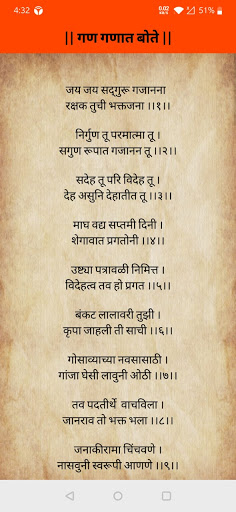 4:32
0.02 KB/S
51%
|| गण गणात बोते ||
जय जय सद्गुरू गजानना
रक्षक तुची भक्तजना ।।१।।
निर्गुण तू परमात्मा तू ।
सगुण रूपात गजानन तू ।।२।।
सदेह तू परि विदेह तू ।
देह असुनि देहातीत तू ।।३।।
माघ वद्य सप्तमी दिनी ।
शेगावात प्रगतोनी ।।४।।
उष्ट्या पत्रावळी निमित्त ।
विदेहत्व तव हो प्रगत ।।५।।
बंकट लालावरी तुझी ।
कृपा जाहली ती साची ।।६।।
गोसाव्याच्या नवसासाठी ।
गांजा घेसी लावुनी ओठी ।।७।।
तव पदतीर्थे वाचविला ।
जानराव तो भक्त भला ।।८।।
जनाकीरामा चिंचवणे ।
नासवुनी स्वरूपी आणणे ।।९।।